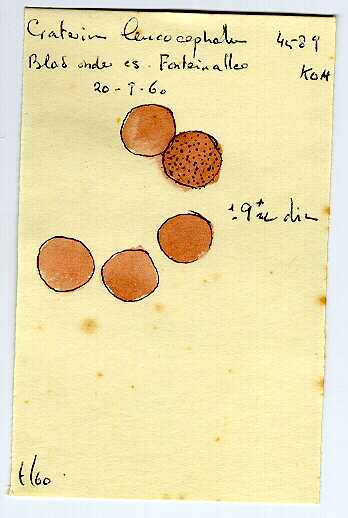 Craterium leucocephalum 4589
Blad onder es. Fonteinallee KOH
20-9-60
± 9 µ dia
t/60.